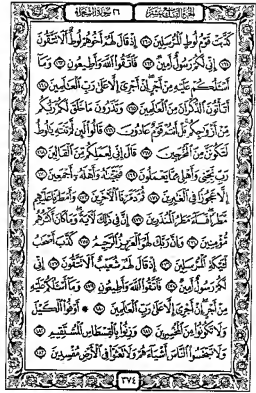 الجزء التاسع عشر ٢٦ سورة الشعراء
كَذَّبَتْ قَوْمُ لُوطٍ الْمُرْسَلِينَ ١٦٠ إِذْ قَالَ لَهُمْ أَخُوهُمْ لُوطٌ أَلَا تَتَّقُونَ
١٦١ إِنِّي لَكُمْ رَسُولٌ أَمِينٌ ١٦٢ فَاتَّقُوا اللَّهَ وَأَطِيعُونِ ١٦٣ وَمَا
أَسْـَٔلُكُمْ عَلَيْهِ مِنْ أَجْرٍ إِنْ أَجْرِيَ إِلَّا عَلَىٰ رَبِّ الْعَٰلَمِينَ ١٦٤
أَتَأْتُونَ الذُّكْرَانَ مِنَ الْعَٰلَمِينَ ١٦٥ وَتَذَرُونَ مَا خَلَقَ لَكُمْ رَبُّكُمْ
مِنْ أَزْوَٰجِكُمْ بَلْ أَنْتُمْ قَوْمٌ عَادُونَ ١٦٦ قَالُوا لَئِنْ لَمْ تَنْتَهِ يَٰلُوطُ
لَتَكُونَنَّ مِنَ الْمُخْرَجِينَ ١٦٧ قَالَ إِنِّي لِعَمَلِكُمْ مِنَ الْقَالِينَ ١٦٨
رَبِّ نَجِّنِي وَأَهْلِي مِمَّا يَعْمَلُونَ ١٦٩ فَنَجَّيْنَٰهُ وَأَهْلَهُ أَجْمَعِينَ ١٧٠
إِلَّا عَجُوزًا فِي الْغَٰبِرِينَ ١٧١ ثُمَّ دَمَّرْنَا الْآخَرِينَ ١٧٢ وَأَمْطَرْنَا عَلَيْهِمْ
مَطَرًا فَسَاءَ مَطَرُ الْمُنْذَرِينَ ١٧٣ إِنَّ فِي ذَٰلِكَ لَآيَةً وَمَا كَانَ أَكْثَرُهُمْ
مُؤْمِنِينَ ١٧٤ وَإِنَّ رَبَّكَ لَهُوَ الْعَزِيزُ الرَّحِيمُ ١٧٥ كَذَّبَ أَصْحَٰبُ
لْـَٔيْكَةِ الْمُرْسَلِينَ ١٧٦ إِذْ قَالَ لَهُمْ شُعَيْبٌ أَلَا تَتَّقُونَ ١٧٧ إِنِّي
لَكُمْ رَسُولٌ أَمِينٌ ١٧٨ فَاتَّقُوا اللَّهَ وَأَطِيعُونِ ١٧٩ وَمَا أَسْـَٔلُكُمْ عَلَيْهِ
مِنْ أَجْرٍ إِنْ أَجْرِيَ إِلَّا عَلَىٰ رَبِّ الْعَٰلَمِينَ ١٨٠ ۞ أَوْفُوا الْكَيْلَ
وَلَا تَكُونُوا مِنَ الْمُخْسِرِينَ ١٨١ وَزِنُوا بِالْقِسْطَاسِ الْمُسْتَقِيمِ ١٨٢
وَلَا تَبْخَسُوا النَّاسَ أَشْيَاءَهُمْ وَلَا تَعْثَوْا فِي الْأَرْضِ مُفْسِدِينَ ١٨٣
٣٧٤